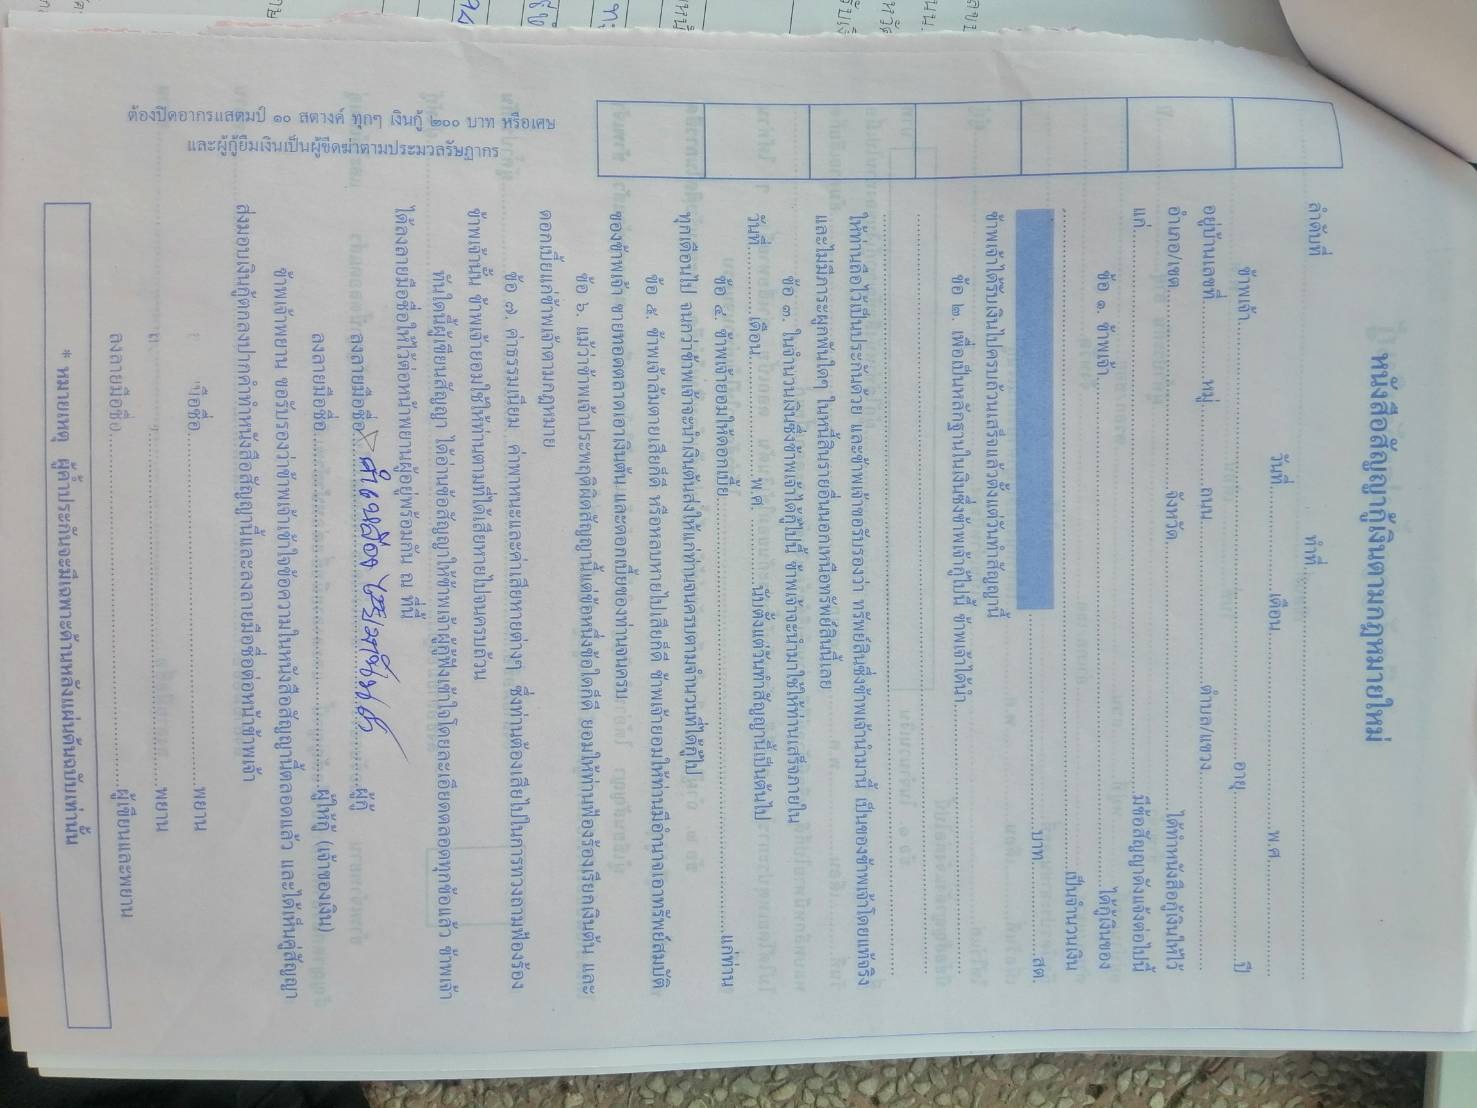 หนังสือสัญญากู้เงินตามกฎหมายใหม่
ลำดับที่ ทำที่
วันที่ เดือน พ.ศ.
ข้าพเจ้า อายุ ปี
อยู่บ้านเลขที่ หมู่ ถนน ตำบล/แขวง
อำเภอ/เขต จังหวัด ได้ทำหนังสือกู้เงินให้ไว้
แก่ มีข้อสัญญาดังแจ้งต่อไปนี้
ข้อ ๑. ข้าพเจ้า ได้กู้เงินของ
เป็นจำนวนเงิน
บาท สต.
ข้าพเจ้าได้รับเงินไปครบถ้วนเสร็จแล้วตั้งแต่วันทำสัญญานี้
ข้อ ๒. เพื่อเป็นหลักฐานในเงินซึ่งข้าพเจ้ากู้ไปนี้ ข้าพเจ้าได้นำ
ให้ท่านถือไว้เป็นประกันด้วย และข้าพเจ้าขอรับรองว่า ทรัพย์สินซึ่งข้าพเจ้านำมานี้ เป็นของข้าพเจ้าโดยแท้จริง
และไม่มีภาระผูกพันใดๆ ในหนี้สินรายอื่นนอกเหนือทรัพย์สินนี้เลย
ข้อ ๓. ในจำนวนเงินซึ่งข้าพเจ้าได้กู้ไปนี้ ข้าพเจ้าจะนำมาใช้ให้ท่านเสร็จภายใน
วันที่ เดือน พ.ศ. นับตั้งแต่วันทำสัญญานี้เป็นต้นไป
ข้อ ๔. ข้าพเจ้ายอมให้ดอกเบี้ย แก่ท่าน
ทุกเดือนไป จนกว่าข้าพเจ้าจะนำเงินต้นส่งให้แก่ท่านจนครบตามจำนวนที่ได้กู้ไป
ข้อ ๕. ข้าพเจ้าล้มตายเสียก็ดี หรือหลบหายไปเสียก็ดี ข้าพเจ้ายอมให้ท่านมีอำนาจเอาทรัพย์สมบัติ
ของข้าพเจ้า ขายทอดตลาดเอาเงินต้น และดอกเบี้ยของท่านจนครบ
ข้อ ๖. แม้ว่าข้าพเจ้าประพฤติผิดสัญญานี้แต่ข้อหนึ่งข้อใดก็ดี ยอมให้ท่านฟ้องร้องเรียกเงินต้น และ
ดอกเบี้ยแก่ข้าพเจ้าตามกฎหมาย
ข้อ ๗. ค่าธรรมเนียม ค่าพาหนะและค่าเสียหายต่างๆ ซึ่งท่านต้องเสียไปในการทวงถามฟ้องร้อง
ข้าพเจ้านั้น ข้าพเจ้ายอมใช้ให้ท่านตามที่ได้เสียหายไปจนครบถ้วน
ทันใดนี้ผู้เขียนสัญญา ได้อ่านข้อสัญญาให้ข้าพเจ้าผู้กู้ฟังเข้าใจโดยละเอียดตลอดทุกข้อแล้ว ข้าพเจ้า
ได้ลงลายมือชื่อให้ไว้ต่อหน้าพยานผู้อยู่พร้อมกัน ณ ที่นี้
ลงลายมือชื่อ ผู้กู้
ลงลายมือชื่อ ผู้ให้กู้ (เจ้าของเงิน)
ข้าพเจ้าพยาน ขอรับรองว่าข้าพเจ้าเข้าใจข้อความในหนังสือสัญญานี้ตลอดแล้ว และได้เห็นคู่สัญญา
ส่งมอบเงินกู้ตกลงปากคำทำหนังสือสัญญานี้และลงลายมือชื่อต่อหน้าข้าพเจ้า
มือชื่อ พยาน
พยาน
ลงลายมือชื่อ ผู้เขียนและพยาน
* หมายเหตุ ผู้ค้ำประกันจะมีเฉพาะด้านหลังแผ่นต้นฉบับเท่านั้น
ต้องปิดอากรแสตมป์ ๑๐ สตางค์ ทุกๆ เงินกู้ ๒๐๐ บาท หรือเศษ
และผู้กู้ยืมเงินเป็นผู้ขีดฆ่าตามประมวลรัษฎากร